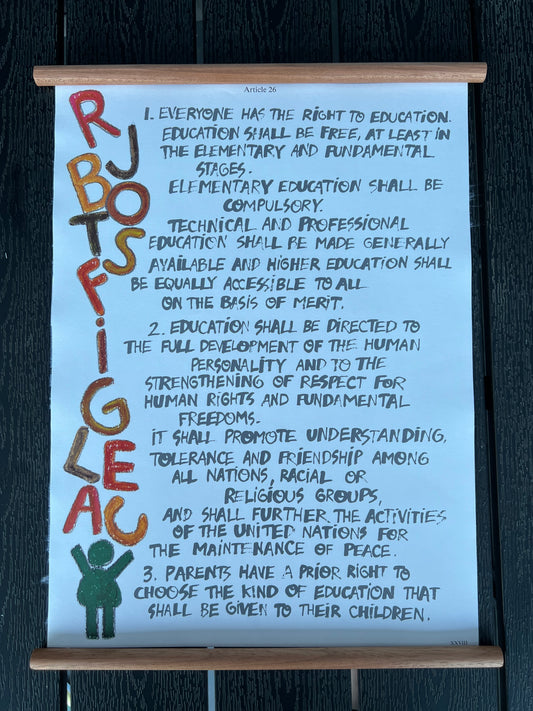 Article 26
R
J
B
O
T
S
F
i
G
L
E
A
U
1. EVERYONE HAS THE RIGHT TO EDUCATION.
EDUCATION SHALL BE FREE, AT LEAST IN
THE ELEMENTARY AND FUNDAMENTAL
STAGES.
ELEMENTARY EDUCATION SHALL BE
COMPULSORY.
TECHNICAL AND PROFESSIONAL
EDUCATION SHALL BE MADE GENERALLY
AVAILABLE AND HIGHER EDUCATION SHALL
BE EQUALLY ACCESSIBLE TO ALL
ON THE BASIS OF MERIT.
2. EDUCATION SHALL BE DIRECTED TO
THE FULL DEVELOPMENT OF THE HUMAN
PERSONALITY AND TO THE
STRENGTHENING OF RESPECT FOR
HUMAN RIGHTS AND FUNDAMENTAL
FREEDOMS.
IT SHALL PROMOTE UNDERSTANDING,
TOLERANCE AND FRIENDSHIP AMONG
ALL NATIONS, RACIAL OR
RELIGIOUS GROUPS,
AND SHALL FURTHER THE ACTIVITIES
OF THE UNITED NATIONS FOR
THE MAINTENANCE OF PEACE.
3. PARENTS HAVE A PRIOR RIGHT TO
CHOOSE THE KIND OF EDUCATION THAT
SHALL BE GIVEN TO THEIR CHILDREN.
XXVIII